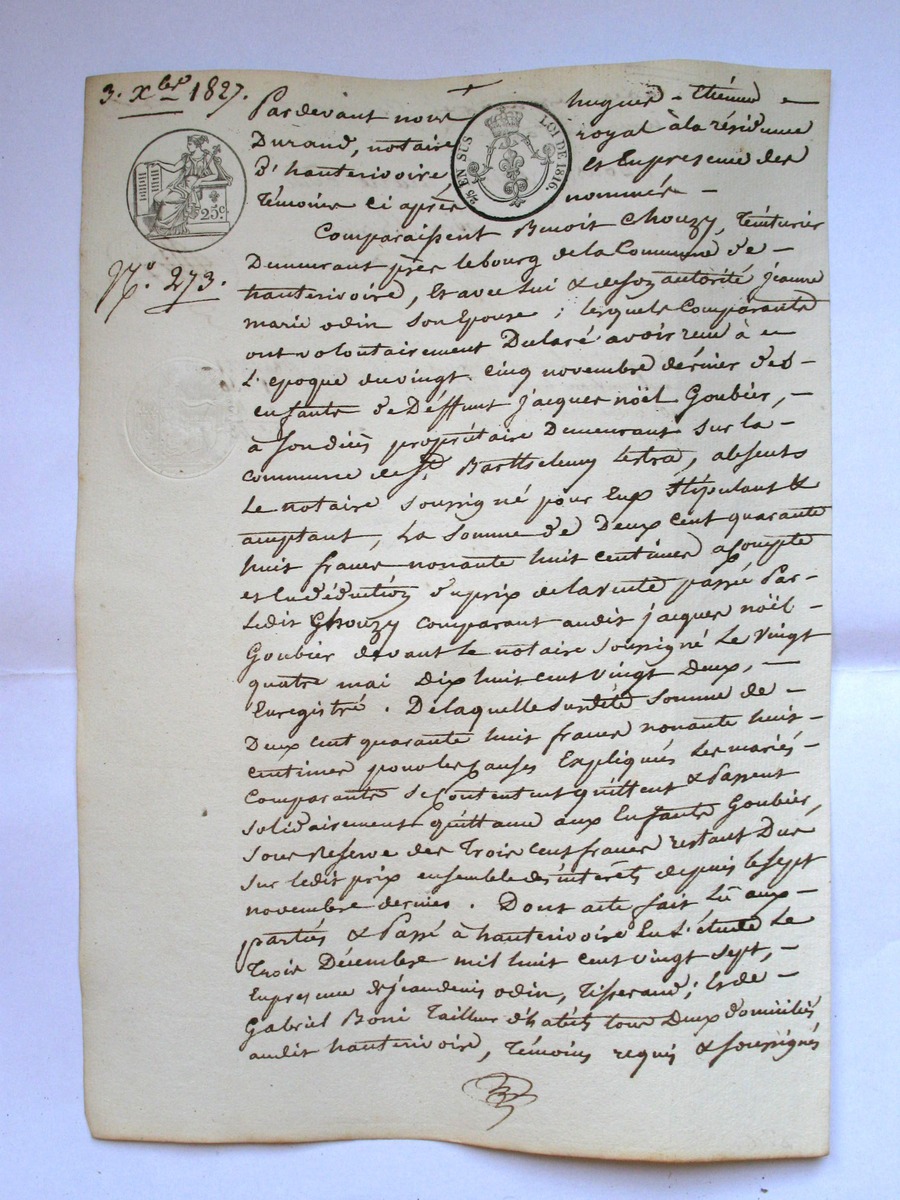 3. Xbre 1827.
Pardevant nous hugues - Etienne
Durand, notaire royal à la résidence
d'hauterivoire Et En presence des
Témoins ci après nommés -
25c
2/5 EN SUS LOI DE 1816
Comparaissent Benoit Chouzy, Teinturier
N.o 273.
Demeurant près le bourg de la Commune de -
hauterivoire, Et avec lui & de son autorité jeanne
marie odin son Epouse ; lesquels Comparants
ont volontairement Déclaré avoir reçu à
L'epoque du vingt cinq novembre dernier des -
enfants de Deffunt jacques noël Goubier, -
à son décès propriétaire Demeurant sur la -
commune de St. Barthelemy Lestra, absents
Le notaire soussigné pour Eux stipulant &
acceptant, La somme de Deux cent quarante
huit francs nonante huit centimes a Compte
et En déduction du prix de la vente passée Par -
Ledit Chouzy Comparant audit jacques noël -
Goubier devant Le notaire soussigné Le vingt
quatre mai Dix huit cent vingt Deux, -
Enregistré. De laquelle susdite somme de -
Deux cent quarante huit francs nonante huit -
centimes pour les Causes Expliquées Les mariés -
Comparants se Contentent quittent & Passent
solidairement quittance aux Enfants Goubier,
sous Reserve des Trois Cent francs restant Dus
sur ledit prix ensemble des intérets depuis le sept
novembre dernier. Dont acte fait Lû aux -
parties & Passé à hauterivoire En L'étude Le
Trois Décembre mil huit cent vingt sept, -
En presence de jean denis odin, Tisserand ; Et de -
Gabriel Boni Tailleur d'habits tous Deux domiciliés
audit hauterivoire, Témoins requis & soussignés